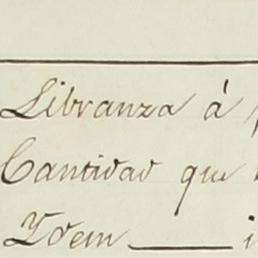 Libranza á
Cantidad que
Ydem